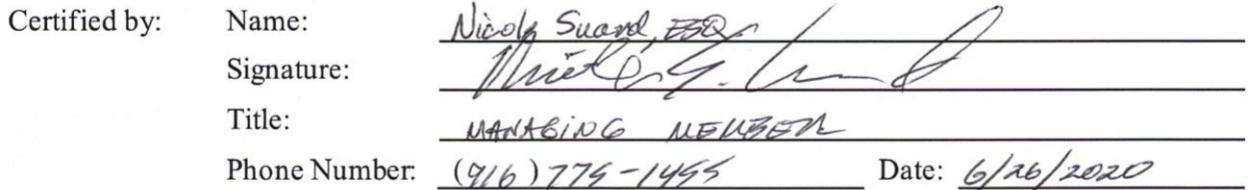 Certified by: Name: Nicole Suard, ESQ
Signature:
Title: MANAGING MEMBER
Phone Number: (916) 775-1455 Date: 6/26/2020